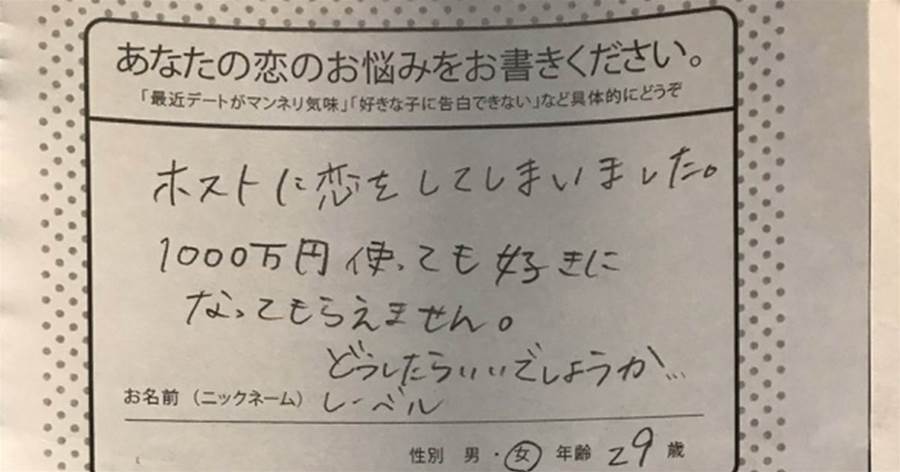 あなたの恋のお悩みをお書きください。
「最近デートがマンネリ気味」「好きな子に告白できない」など具体的にどうぞ
ホストに恋をしてしまいました。
1000万円使っても好きに
なってもらえません。
どうしたらいいでしょうか…
お名前（ニックネーム） レーベル
性別 男・女 年齢 29 歳